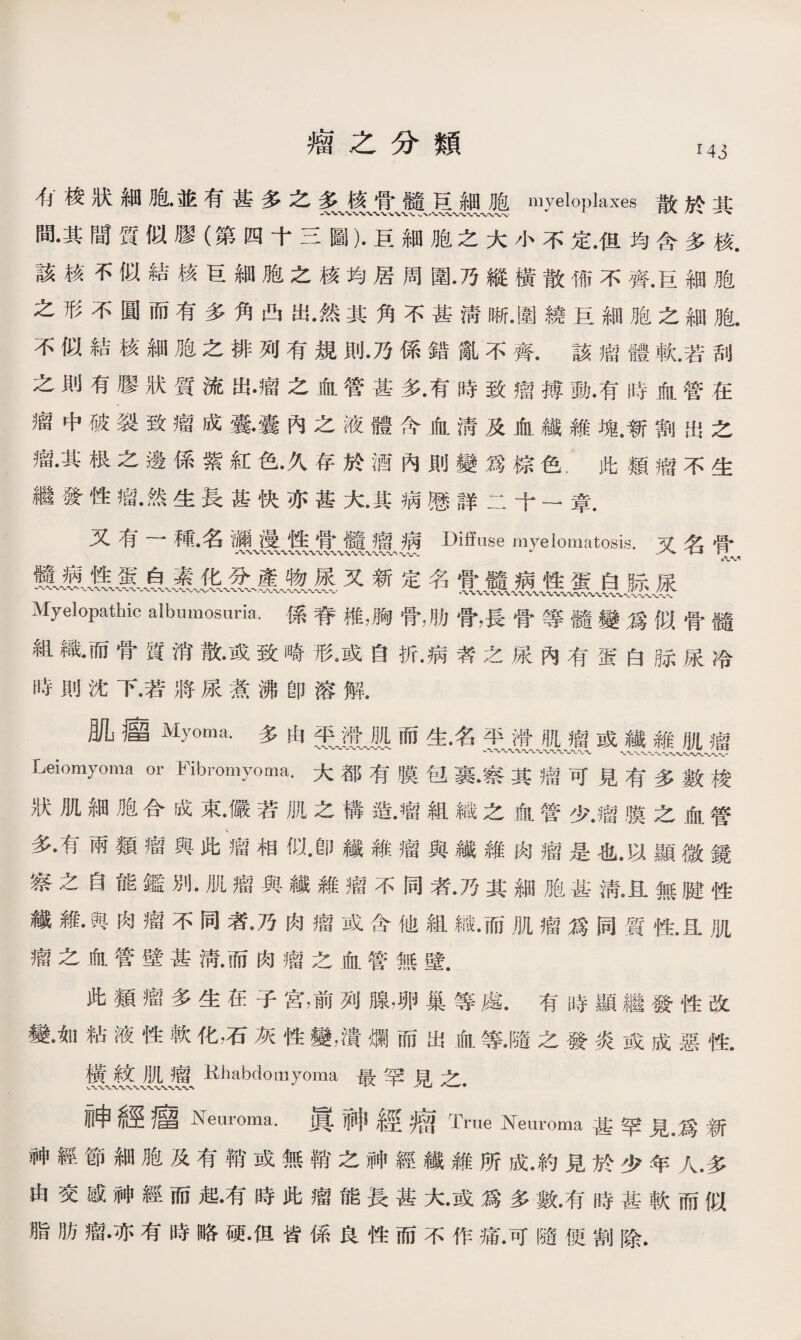 瘤之分類
143
有梭狀細胞.並有甚多之多核骨髓巨細胞 myeloplaxes 散於其
間.其間質似膠(第四十三圖).巨細胞之大小不定.但均含多核.
該核不似結核巨細胞之核均居周圍.乃縱橫散佈不齊.巨細胞
之形不圓而有多角凸出.然其角不甚淸晰.圍繞巨細胞之細胞.
不似結核細胞之排列有規則.乃係錯亂不齊. 該瘤體軟.若刮
之則有膠狀質流出.瘤之血管甚多.有時致瘤搏動.有時血管在
瘤中破裂致瘤成囊.囊內之液體含血淸及血纖維塊.新割出之
瘤.其根之邊係紫紅色.久存於酒內則變爲棕色. 此類瘤不生
繼發性瘤.然生長甚快亦甚大.其病歷詳二十一章.
又有一種.名瀰漫性骨髓瘤病 Diffuse myelomatosis. 又名骨
髓病性蛋白素化分產物尿又新定名骨髓病性蛋白䏡尿
Myelopathic albumosuria. 係脊椎,胸骨,肋骨,長骨等髓變爲似骨髓
組織.而骨質消散.或致畸形.或自折.病者之尿內有蛋白䏡尿冷
時則沈下.若將尿煮沸卽溶解.
肌瘤 Myoma. 多由平滑肌而生.名平滑肌瘤或纖維肌瘤
Leiomyoma or Fibromyoma. 大都有膜包裹.察其瘤可見有多數梭
狀肌細胞合成束.儼若肌之構造.瘤組織之血管少.瘤膜之血管
多.有兩類瘤與此瘤相似.卽纖維瘤與纖維肉瘤是也.以顯微鏡
察之自能鑑別.肌瘤與纖維瘤不同者.乃其細胞甚淸.且無腱性
纖維.與肉瘤不同者.乃肉瘤或含他組織.而肌瘤爲同質性.且肌
瘤之血管壁甚淸.而肉瘤之血管無壁.
此類瘤多生在子宮,前列腺,卵巢等處. 有時顯繼發性改
變.如粘液性軟化,石灰性變,潰爛而出血等.隨之發炎或成惡性.
橫紋肌瘤 Rhabdomyoma 最罕見之.
神經瘤 Neuroma. 眞神經瘤 True Neuroma 甚罕見.爲新
神經節細胞及有鞘或無鞘之神經纖維所成.約見於少年人.多
由交感神經而起.有時此瘤能長甚大.或爲多數.有時甚軟而似
脂肪瘤.亦有時略硬.但皆係良性而不作痛.可隨便割除.